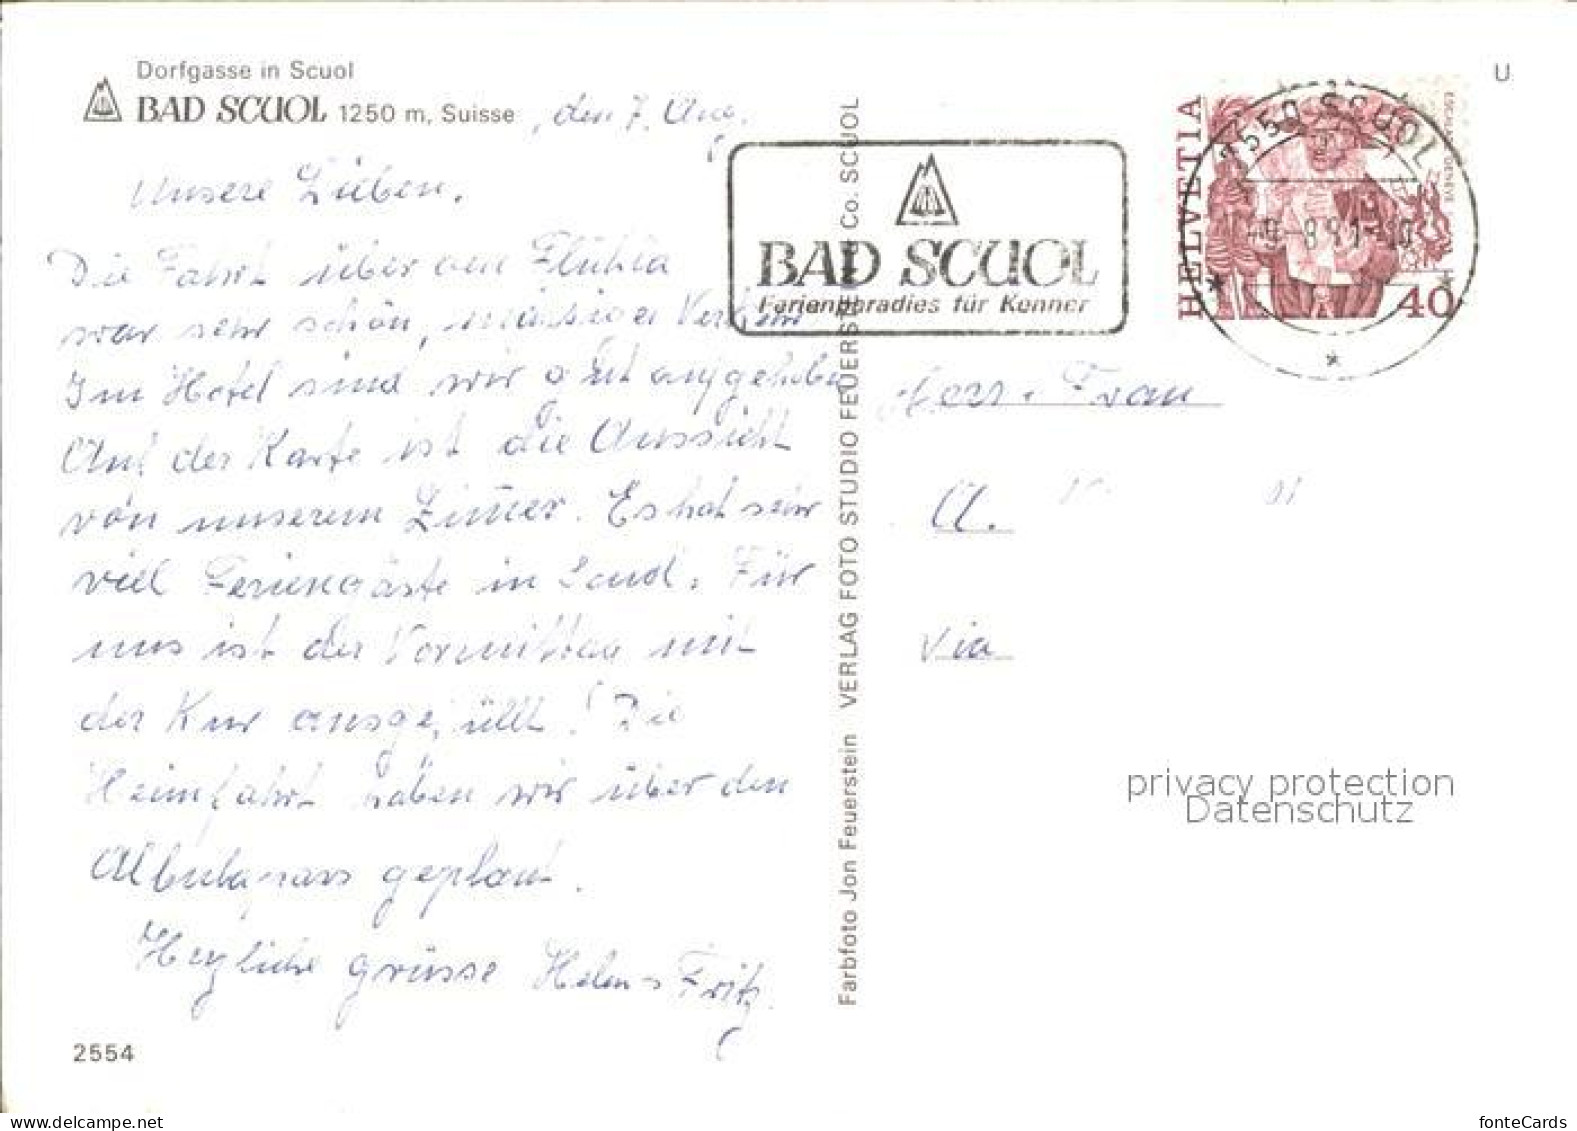 Dorfgasse in Scuol
BAD SCUOL 1250 m, Suisse
, den 7. Aug.
Unsere Lieben.
Die Fahrt über den Flühla
war sehr schön, mässiger Verkehr
Im Hotel sind wir gut aufgehoben
Auf der Karte ist die Aussicht
von unserem Zim̄er. Es hat sehr
viel Feriengäste in Land. Für
uns ist der Vormittag mit
der Kur ausgefüllt! Die
Heimfahrt haben wir über den
Albulapass geplant.
Herzliche grüsse Helen + Fritz.
2554
Farbfoto Jon Feuerstein VERLAG FOTO STUDIO FEUERSTEIN Co. SCUOL
BAD SCUOL
Ferienparadies für Kenner
HELVETIA
40
ESCALADE GENEVE
7550 SCUOL
U
Herr + Frau
A.
via
privacy protection
Datenschutz
fonteCards
delcampe.net